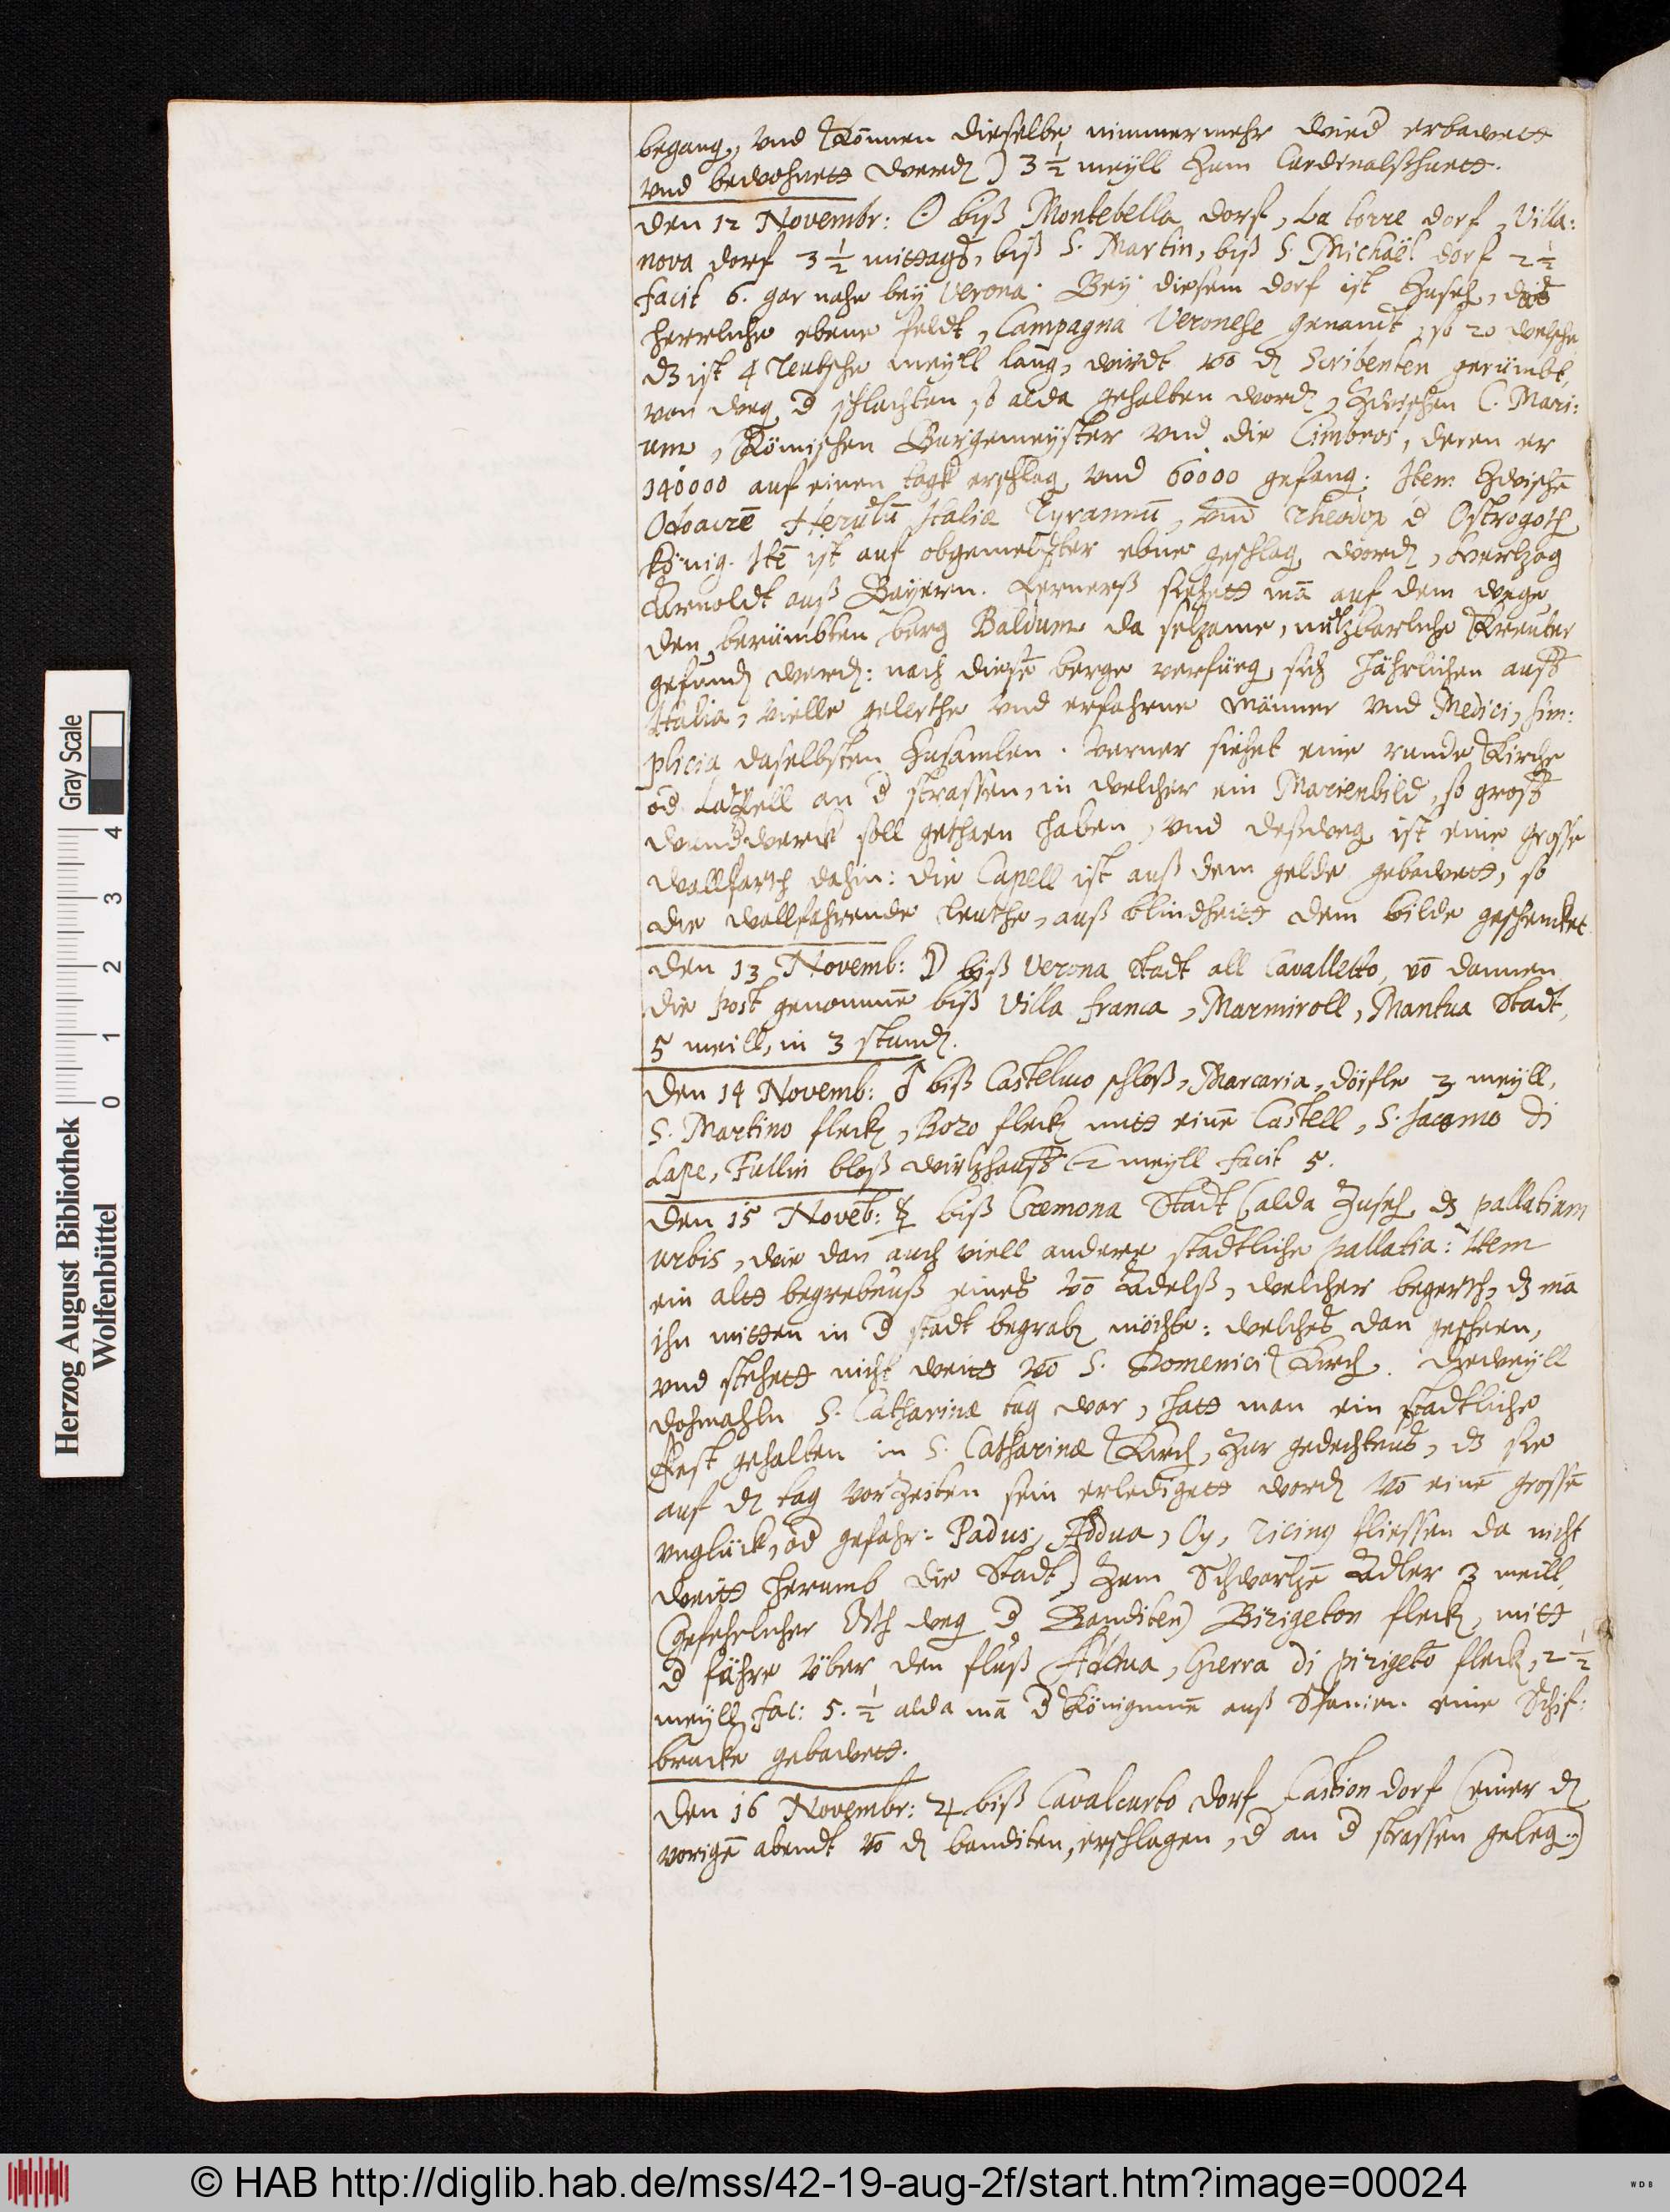 begang, vnd können dieselbe nimmermehr wied erbawett
vnd bewohnett werdē) 3 1/2 meyll zum Cardinalshuett.
Den 12 Novembr: ☉ biß Montebella dorf, La torre dorf, Villa:
nova dorf 3 1/2 mittagß, biß S. Martin, biß S. Michaël dorf 2 1/2
facit 6. gar nahe bey Verona. Bey diesem dorf ist zuseh, dz
herrliche ebene feldt, Campagna Veronese genandt, so 20 welsche
dz ist 4 Teutsche meyll lang, wirdt vō dē Scribenten gerümbt,
von weg d schlachten so alda gehalten wordē, zwischen C. Mari:
um, Römischen Burgemeyster vnd die Cimbros, deren er
140000 auf einen tagk erschlag, vnd 60000 gefang; Item zwischē
Odoacrē Herulū Italiæ Tyrannū, vnd Theodor d Ostrogoth
König. Itē ist auf obgemeldter ebne geschlag wordē, Hertzog
Arnoldt auß Bayern. Fernerß siehett mā auf dem wege
den berümbten berg Baldum da selzame, nutzbarliche Kreuter
gefundē werdē: nach diesē berge verfüeg sich Jährlichen auß
Italia, vielle gelerthe vnd erfahrne Männer vnd Medici, sim:
plicia daselbsten zusamlen. Verner siehet eine runde Kirche
od Cappell an d strassen, in welcher ein Marienbild, so groß
wundwerck soll gethaen haben, vnd deßweg ist eine grosse
wallfarth dahin: die Capell ist auß dem gelde gebawett, so
die wallfahrende Leuthe, auß blindheitt dem bilde geschencket.
Den 13 Novemb: ☽ biß Verona Stadt all Cavalletto, vō dannen
die post genommē biß Villa franca, Marmiroll, Mantua Stadt,
5 meill, in 3 stundē.
Den 14 Novemb: ♂ biß Castelluco schloß, Marcaria, dörfle 3 meyll,
S. Martino fleckē, Bozo fleckē mitt einē Castell, S. Jacomo di
Lape, Fullin bloß wirtzhauß 2 meyll facit 5.
Den 15 Novēb: ☿ biß Cremona Stadt (alda zuseh dz pallatium
urbis, wie dan auch viell andere stadtliche pallatia: Item
ein altt begrebnuß eines vō Adelß, welcher begerth, dz mā
ihn mitten in d stadt begrabē möchte: welches dan gescheen,
vnd stehett nicht weitt vō S. Domenici Kirch. Dieweyll
dohmahln S. Catharinæ tag war, hatt man ein stadtliche
Fest gehalten in S. Catharinæ Kirch, zur gedechtnuß, dz sie
auf dē tag vorzeiten sein erledigett wordē vō einē grossē
vnglück, od gefahr: Padus, Addua, Oy, Ticino fliessen da nicht
weitt herumb die Stadt) Zum Schwartzē Adler 3 meill,
(gefehrlicher Orth weg d Banditen) Birigeton fleckē, mitt
d fähre über den fluß Addua, Gierra di pirigetō fleckē, 2 1/2
meyll, fac: 5. 1/2 alda mā d Königinnē auß Spanien eine Schif:
brucke gebawett.
Den 16 Novembr: ♃ biß Cavalcurto dorf Castion dorf (einer dē
vorigē abendt vō dē banditen, erschlagen, d an d strassen geleg.)
Herzog August Bibliothek
Wolfenbüttel
0 1 2 3 4
Gray Scale
© HAB http://diglib.hab.de/mss/42-19-aug-2f/start.htm?image=00024
WDB